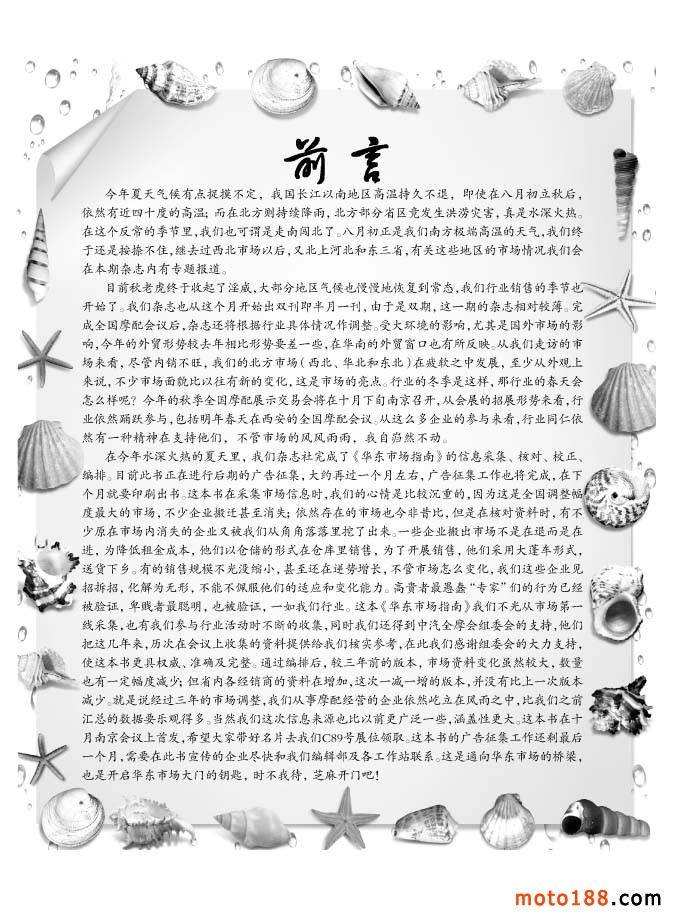 前言
今年夏天气候有点捉摸不定，我国长江以南地区高温持久不退，即使在八月初立秋后，
依然有近四十度的高温；而在北方则持续降雨，北方部分省区竟发生洪涝灾害，真是水深火热。
在这个反常的季节里，我们也可谓是走南闯北了。八月初正是我们南方极端高温的天气，我们终
于还是按捺不住，继去过西北市场以后，又北上河北和东三省，有关这些地区的市场情况我们会
在本期杂志内有专题报道。
目前秋老虎终于收起了淫威，大部分地区气候也慢慢地恢复到常态，我们行业销售的季节也
开始了。我们杂志也从这个月开始出双刊即半月一刊，由于是双期，这一期的杂志相对较薄。完
成全国摩配会议后，杂志还将根据行业具体情况作调整。受大环境的影响，尤其是国外市场的影
响，今年的外贸形势较去年相比形势要差一些，在华南的外贸窗口也有所反映。从我们走访的市
场来看，尽管内销不旺，我们的北方市场（西北、华北和东北）在疲软之中发展，至少从外观上
来说，不少市场面貌比以往有新的变化，这是市场的亮点。行业的冬季是这样，那行业的春天会
怎么样呢？今年的秋季全国摩配展示交易会将在十月下旬南京召开，从会展的招展形势来看，行
业依然踊跃参与，包括明年春天在西安的全国摩配会议。从这么多企业的参与来看，行业同仁依
然有一种精神在支持他们，不管市场的风风雨雨，我自岿然不动。
在今年水深火热的夏天里，我们杂志社完成了《华东市场指南》的信息采集、核对、校正、
编排。目前此书正在进行后期的广告征集，大约再过一个月左右，广告征集工作也将完成，在下
个月就要印刷出书。这本书在采集市场信息时，我们的心情是比较沉重的，因为这是全国调整幅
度最大的市场，不少企业搬迁甚至消失；依然存在的市场也今非昔比，但是在核对资料时，有不
少原在市场内消失的企业又被我们从角角落落里挖了出来。一些企业搬出市场不是在退而是在
进，为降低租金成本，他们以仓储的形式在仓库里销售，为了开展销售，他们采用大蓬车形式，
送货下乡。有的销售规模不光没缩小，甚至还在逆势增长，不管市场怎么变化，我们这些企业见
招拆招，化解为无形，不能不佩服他们的适应和变化能力。高贵者最愚蠢“专家”们的行为已经
被验证，卑贱者最聪明，也被验证，一如我们行业。这本《华东市场指南》我们不光从市场第一
线采集，也有我们参与行业活动时不断的收集，同时我们还得到中汽全摩会组委会的支持，他们
把这几年来，历次在会议上收集的资料提供给我们核实参考，在此我们感谢组委会的大力支持，
使这本书更具权威、准确及完整。通过编排后，较三年前的版本，市场资料变化虽然较大，数量
也有一定幅度减少；但省内各经销商的资料在增加，这次一减一增的版本，并没有比上一次版本
减少。就是说经过三年的市场调整，我们从事摩配经营的企业依然屹立在风雨之中，比我们之前
汇总的数据要乐观得多。当然我们这次信息来源也比以前更广泛一些，涵盖性更大。这本书在十
月南京会议上首发，希望大家带好名片去我们C89号展位领取。这本书的广告征集工作还剩最后
一个月，需要在此书宣传的企业尽快和我们编辑部及各工作站联系。这是通向华东市场的桥梁，
也是开启华东市场大门的钥匙，时不我待，芝麻开门吧！
moto188.com